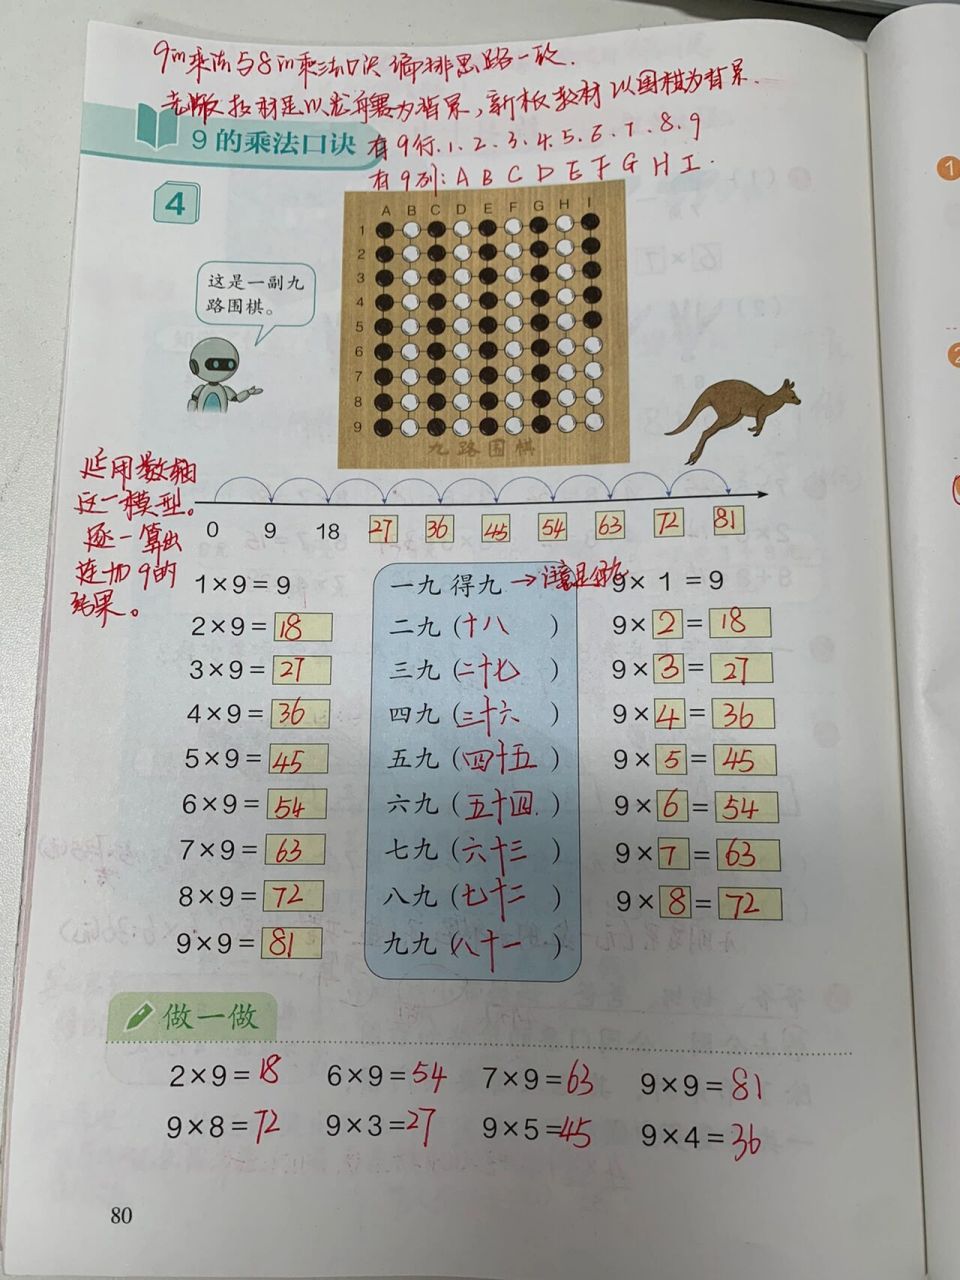 9的乘法与8的乘法口诀编排思路一致.
老版教材是以龙舟赛为背景,新板教材以围棋为背景.
9的乘法口诀
有9行.1、2、3、4、5、6、7、8、9
有9列:A B C D E F G H I.
4
A B C D E F G H I
1
2
3
4
5
6
7
8
9
九路围棋
这是一副九
路围棋。
延用数轴
这一模型。
逐一算出
连加9的
结果。
0 9 18 27 36 45 54 63 72 81
1×9=9 一九 得九 → 9× 1 =9
2×9=18 二九 (十八) 9×2=18
3×9=27 三九 (二十七) 9×3=27
4×9=36 四九 (三十六) 9×4=36
5×9=45 五九 (四十五) 9×5=45
6×9=54 六九 (五十四.) 9×6=54
7×9=63 七九 (六十三) 9×7=63
8×9=72 八九 (七十二) 9×8=72
9×9=81 九九 (八十一)
做一做
2×9=18 6×9=54 7×9=63 9×9=81
9×8=72 9×3=27 9×5=45 9×4=36
80
1
2